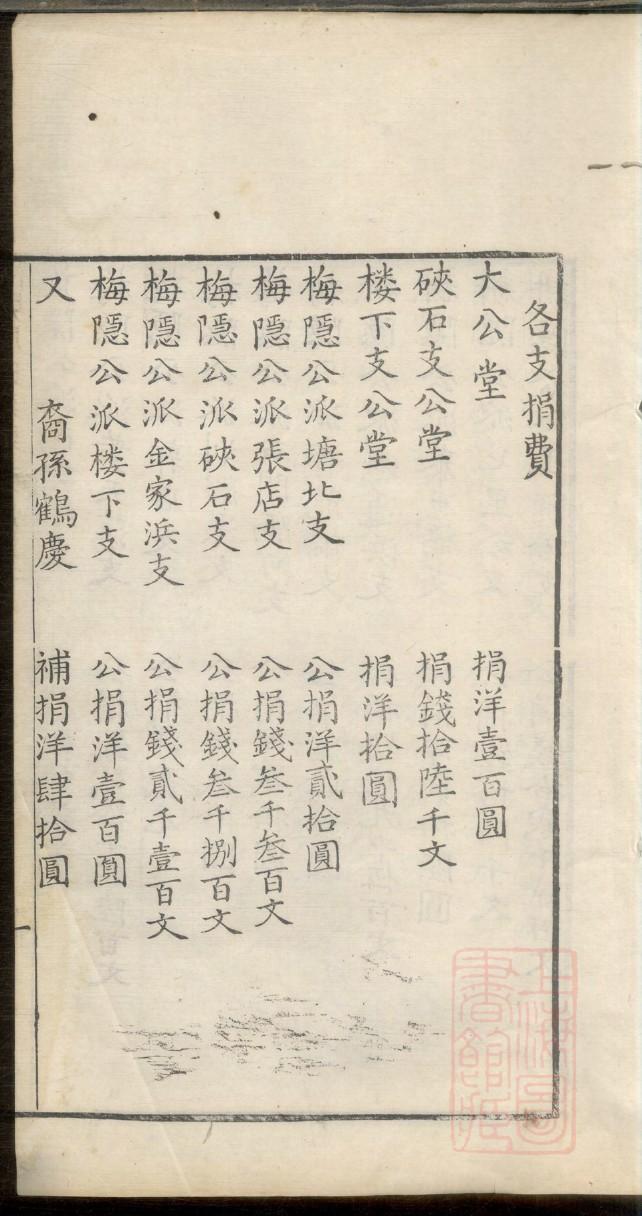 各支捐費
大公堂 捐洋壹百圓
硤石支公堂 捐錢拾陸千文
楼下支公堂 捐洋拾圓
梅隱公派塘北支 公捐洋貳拾圓
梅隱公派張店支 公捐錢叁千叁百文
梅隱公派硤石支 公捐錢叁千捌百文
梅隱公派金家浜支 公捐錢貳千壹百文
梅隱公派楼下支 公捐洋壹百圓
又 裔孫鶴慶 補捐洋肆拾圓
上海圖
書館藏